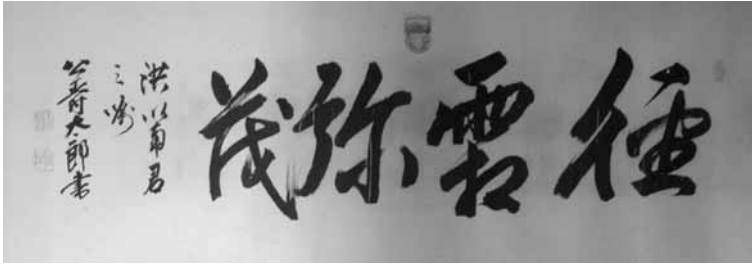 径霜弥茂
洪以南君
之嘱
公爵太郎書